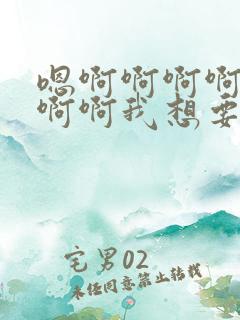 嗯啊啊啊啊
啊啊我想要
宅男02
未经同意禁止转载